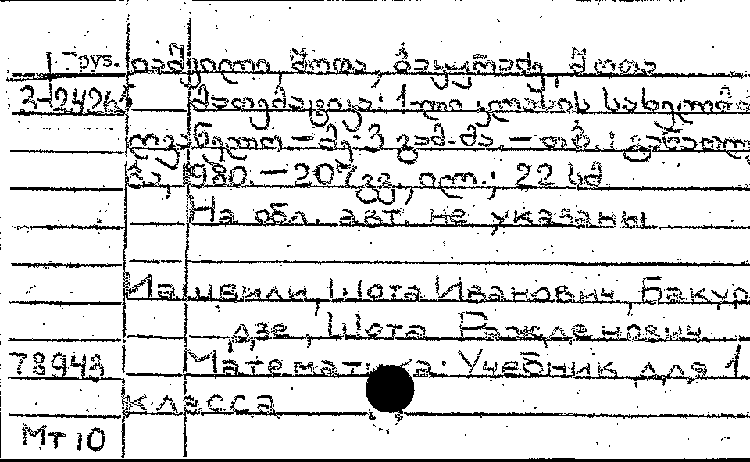 Груз. იაშვილი, შოთა, ბაკურაძე, შოთა
3-2426 მათემატიკა: 1-ლი კლასის სახელმძ
ღვანელო — მე-3 გამ-მა. — თბ.: განათლ
ბა, 1980. — 207 გვ., ილ.; 22 სმ
На обл. авт. не указаны
Иашвили, Шота Иванович, Бакур
дзе, Шота Ражденович
78943 Математика: Учебник для 1
класса
Мт 10